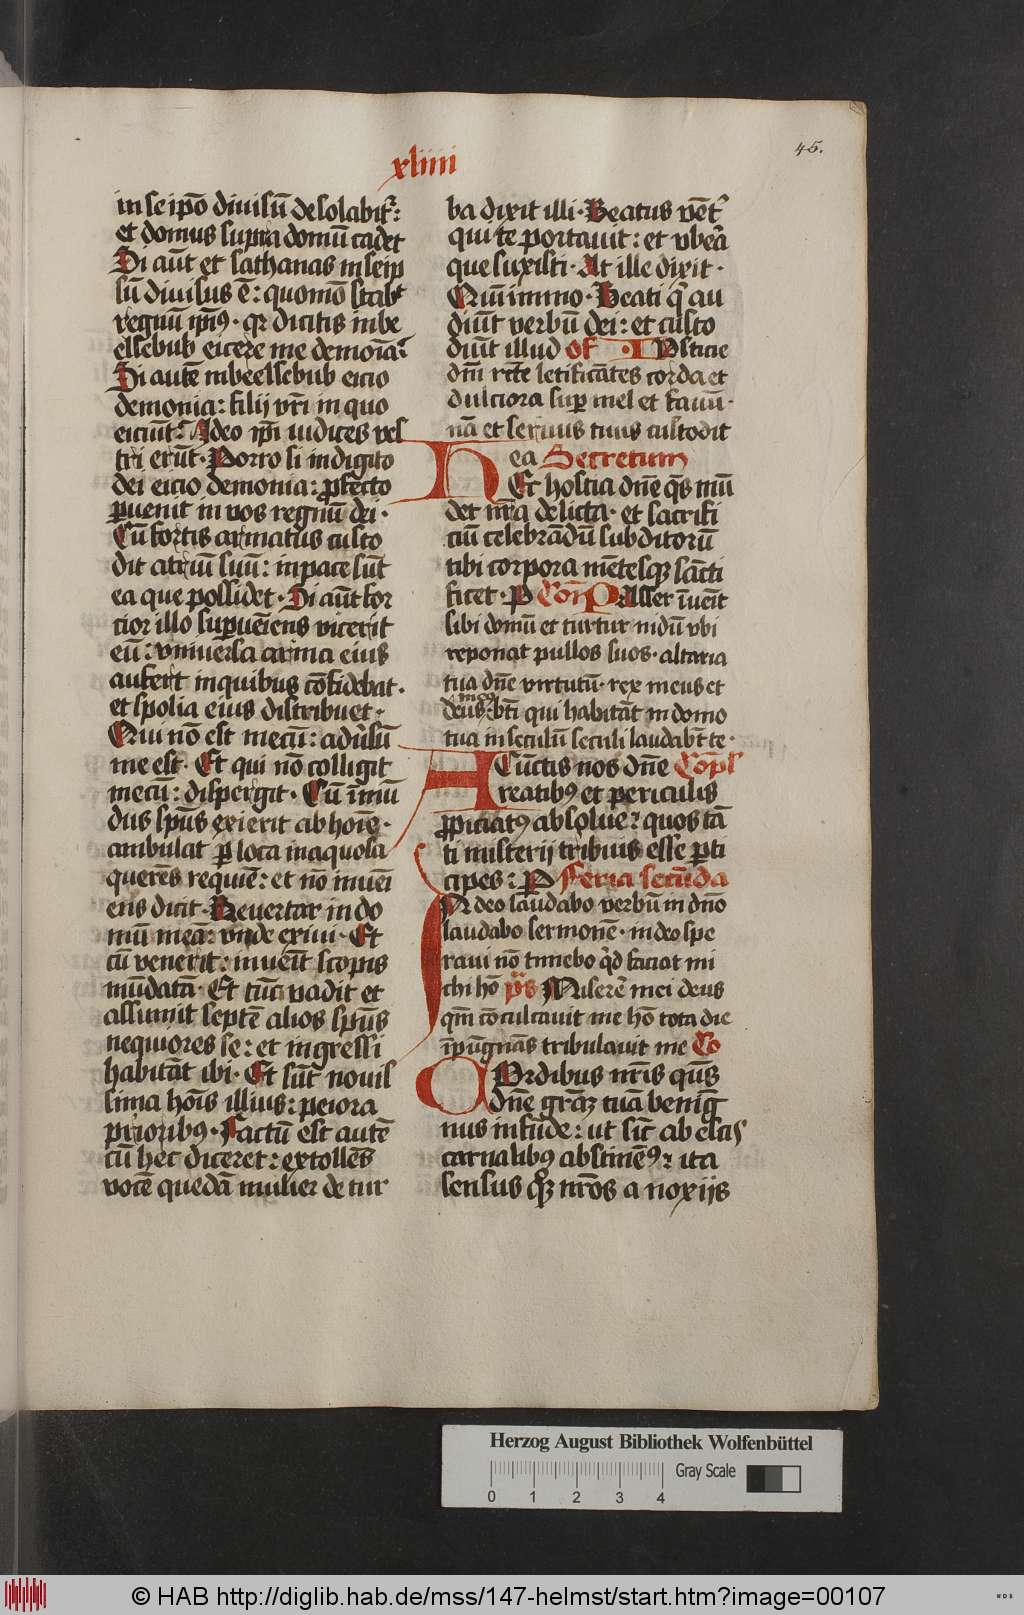 xliiii
45.
in se ip̄o diuisū desolabit᷑:
et domus supra domū cadet
Si aūt et sathanas in seip
sū diuisus ē: quomō stabt
regnū ip̄iꝰ· qꝛ dicitis in be
elsebub eicere me demoīa·
Si autē in beelsebub eicio
demonia: filij vr̄i in quo
eiciūt· Ideo ip̄i iudices ves
tri erūt· Porro si in digito
dei eicio demonia: ꝓfecto
ꝑuenit in vos regnū dei·
Cū fortis armatus custo
dit atriū suū: in pace sūt
ea que possidet· Si aūt for
tior illo suꝑueīens vicerit
eū: vniuersa arma eius
aufert in quibus cōfidebat·
et spolia eius distribuet·
Qui nō est mecū: aduͥsū
me est· Et qui nō colligit
mecū: dispergit· Cū īmū
dus spūs exierit ab hoīe·
ambulat ꝑ loca inaquosa
querēs requiē: et nō inueī
ens dicit· Reuertar in do
mū meā: vnde exiui· Et
cū venerit: inueīt scopis
mūdatā· Et tūc vadit et
assumit septē alios spūs
nequiores se: et ingressi
habitāt ibi· Et sūt nouis
sima hoīs illius: peiora
prioribꝰ· Factū est autē
cū hec diceret: extollēs
vocē quedā mulier de tur
ba dixit illi· Beatus vēt᷑
qui te portauit: et vbeā
que suxisti· At ille dixit·
Quīimmo· Beati qͥ au
diūt verbū dei: et custo
diūt illud of · Iusticie
dn̄i rc̄te letificātes corda et
dulciora suꝑ mel et fauū·
nā et seruus tuus custodit
ea Secretum
Hec hostia dn̄e q̄s mū
det nr̄a delicta· et sacrifi
ciū celebrādū subditorū
tibi corpora mētesqꝫ sācti
ficet· P Com̄ Passer īueīt
sibi domū et turtur nidū vbi
reponat pullos suos· altaria
tua dn̄e virtutū· rex meus et
meꝰ
deus bt̄i qui habitāt in domo
tua in seculū seculi laudabt̄ te·
A Cūctis nos dn̄e Cōpl
reatibꝰ et periculis
ꝓpiciatꝰ absolue: quos tā
ti misterij tribuis esse ꝑti
cipes: P Feria secūda
In deo laudabo verbū in dn̄o
laudabo sermonē· in deo spe
raui nō timebo qͥd faciat mi
chi hō p̄s Miserē mei deus
qm̄ cōculcauit me hō tota die
īpūgnās tribulauit me Co
Cordibus nr̄is qūs
dn̄e grāꝫ tuā benig
nus infūde: ut sic̄ ab escis
carnalibꝰ abstinēꝰ: ita
sensus qͦꝫ nr̄os a noxijs
Herzog August Bibliothek Wolfenbüttel
Gray Scale
0 1 2 3 4
© HAB http://diglib.hab.de/mss/147-helmst/start.htm?image=00107